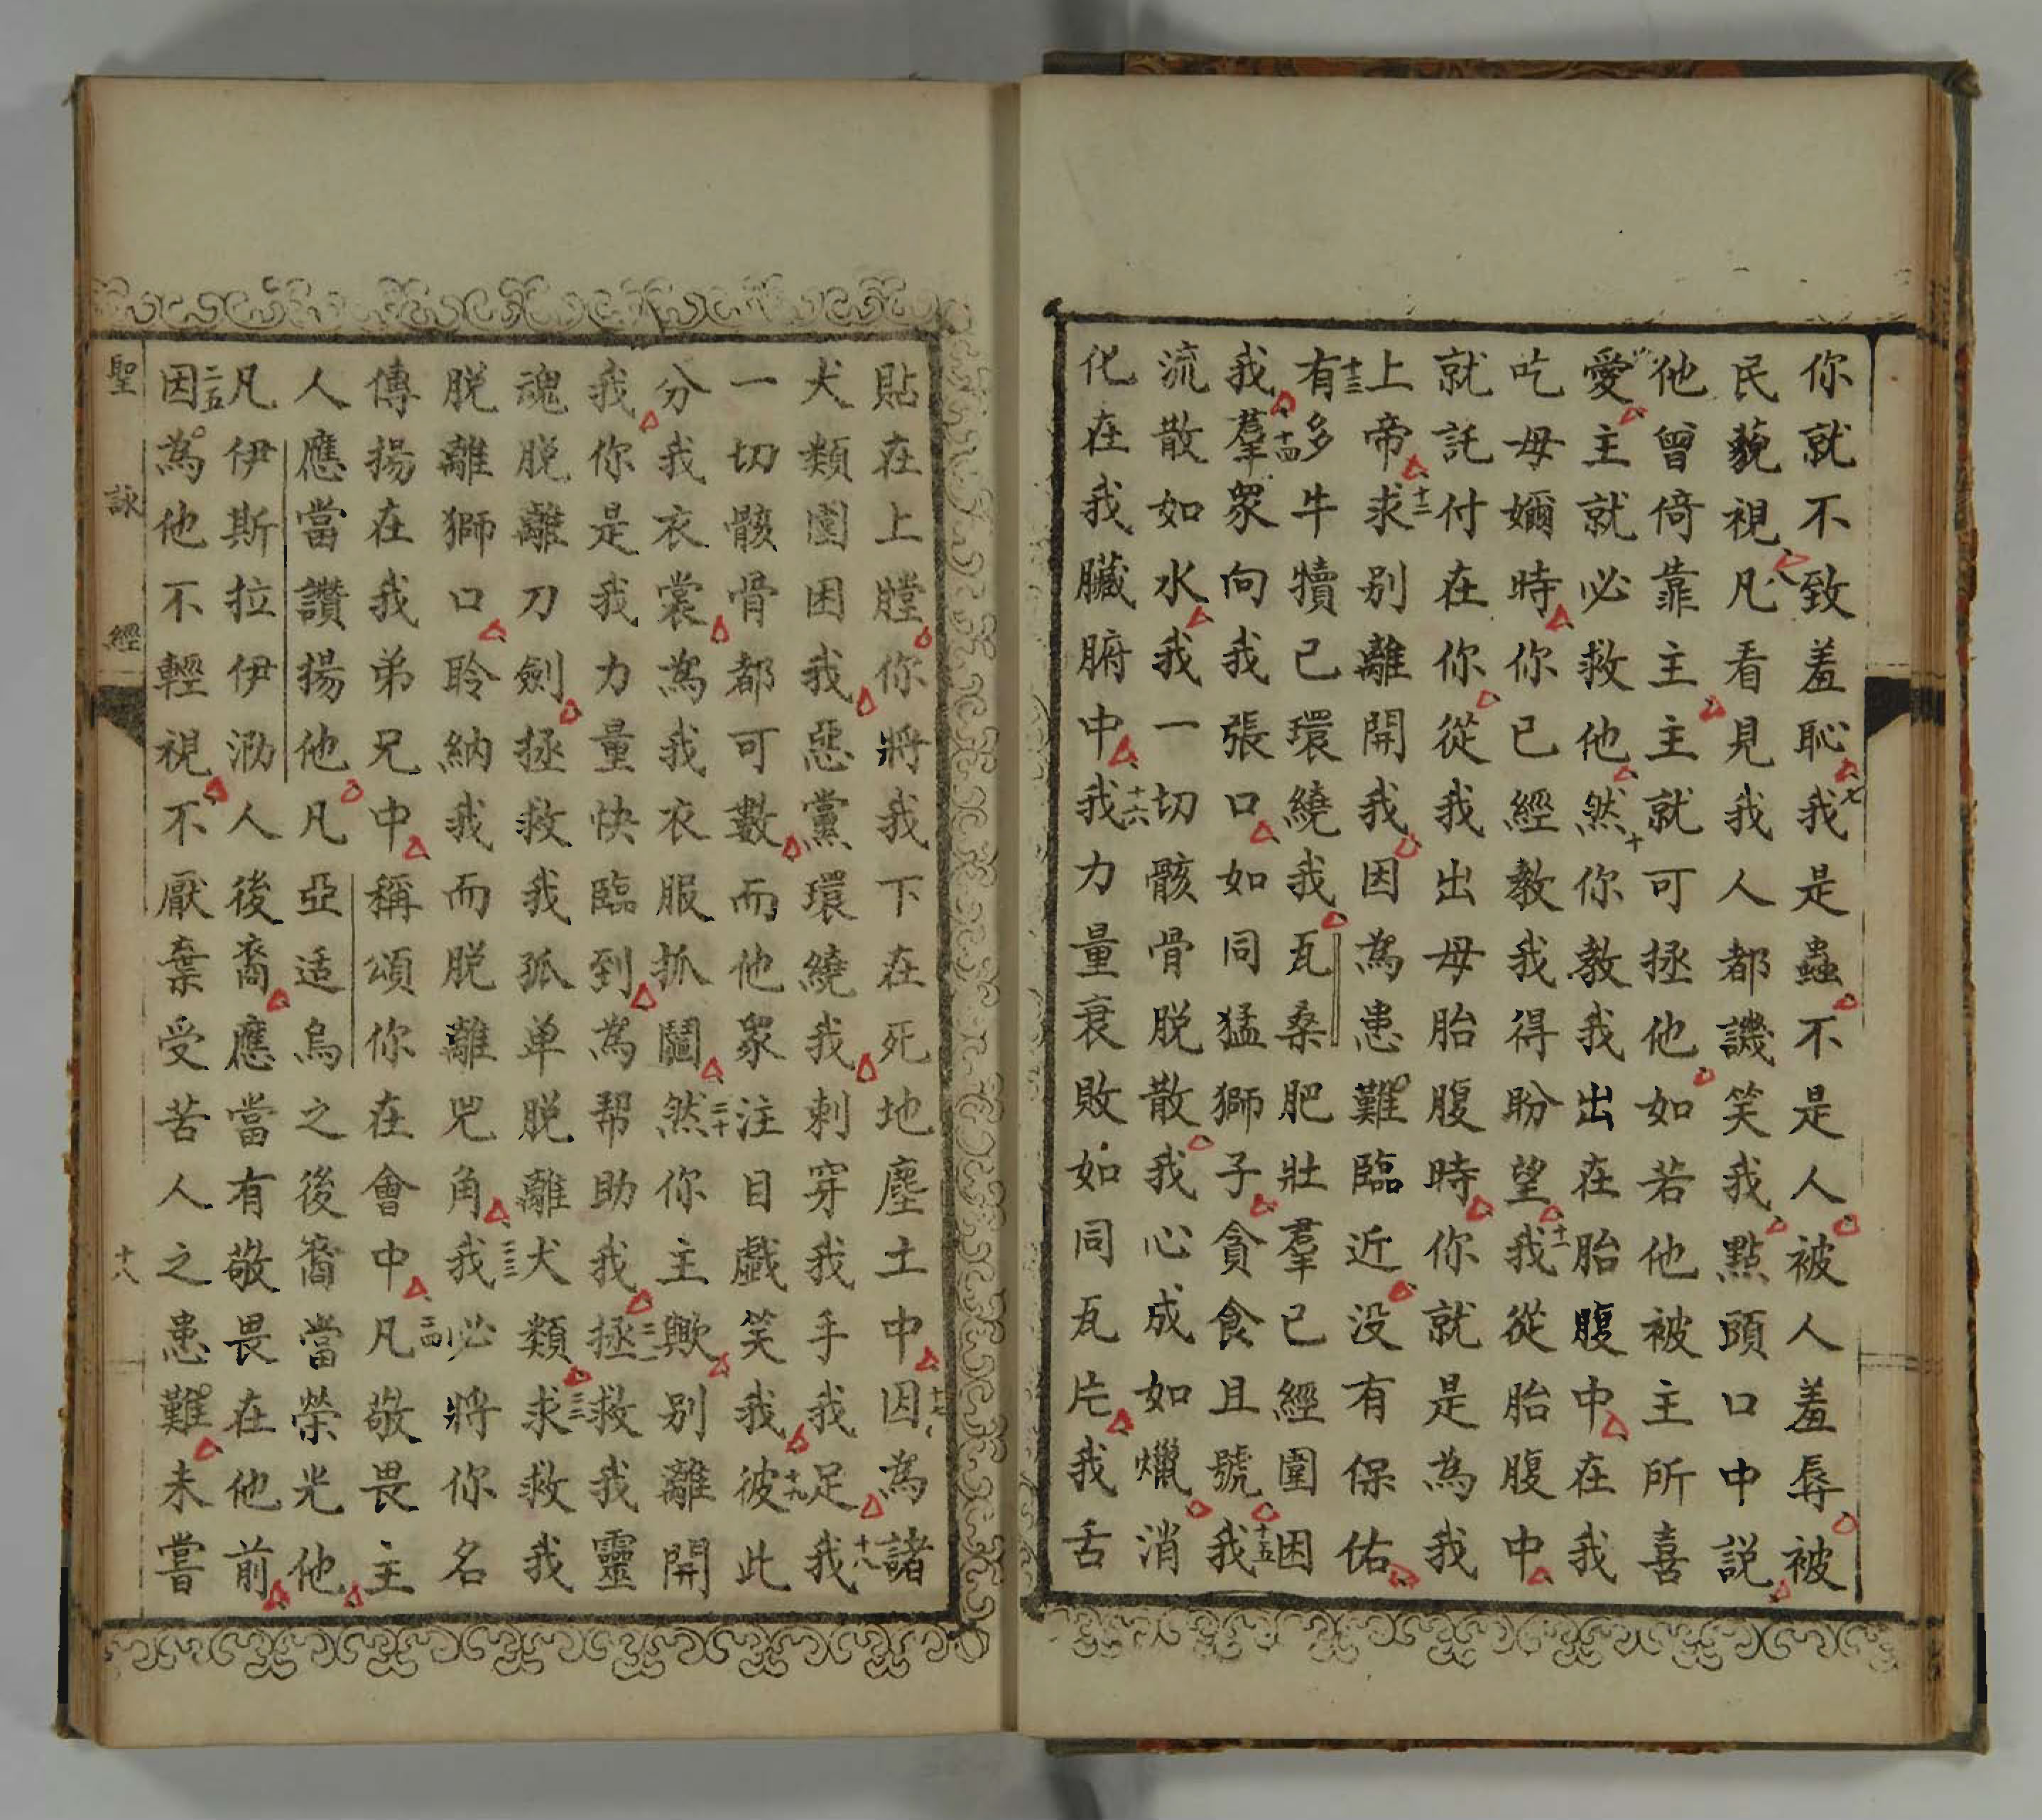 你就不致羞恥七我是蟲不是人被人羞辱被
民藐視八凡看見我人都譏笑我點頭口中説
他曾倚靠主主就可拯他如若他被主所喜
愛主就必救他十然你教我出在胎腹中在我
吃母嬭時你已經教我得盼望十一我從胎腹中
就託付在你從我出母胎腹時你就是為我
上帝十二求别離開我因為患難臨近没有保佑
十三有多牛犢已環繞我瓦桑肥壯羣已經圍困
我十四羣衆向我張口如同猛獅子貪食且號十五我
流散如水我一切骸骨脱散我心成如爥消
化在我臟腑中十六我力量衰敗如同瓦片我舌
貼在上膛你將我下在死地塵土中十七因為諸
犬類圍困我惡黨環繞我刺穿我手我足十八我
一切骸骨都可數而他衆注目戲笑我十九彼此
分我衣裳為我衣服抓鬮二十然你主歟别離開
我你是我力量快臨到為帮助我二一拯救我靈
魂脱離刀劍拯救我孤单脱離犬類二二求救我
脱離獅口聆納我而脱離兕角二三我必將你名
傳揚在我弟兄中稱頌你在會中二四凡敬畏主
人應當讚揚他凡亞适烏之後裔當榮光他
凡伊斯拉伊泐人後裔應當有敬畏在他前
二五因為他不輕視不厭棄受苦人之患難未嘗
聖詠經 十八